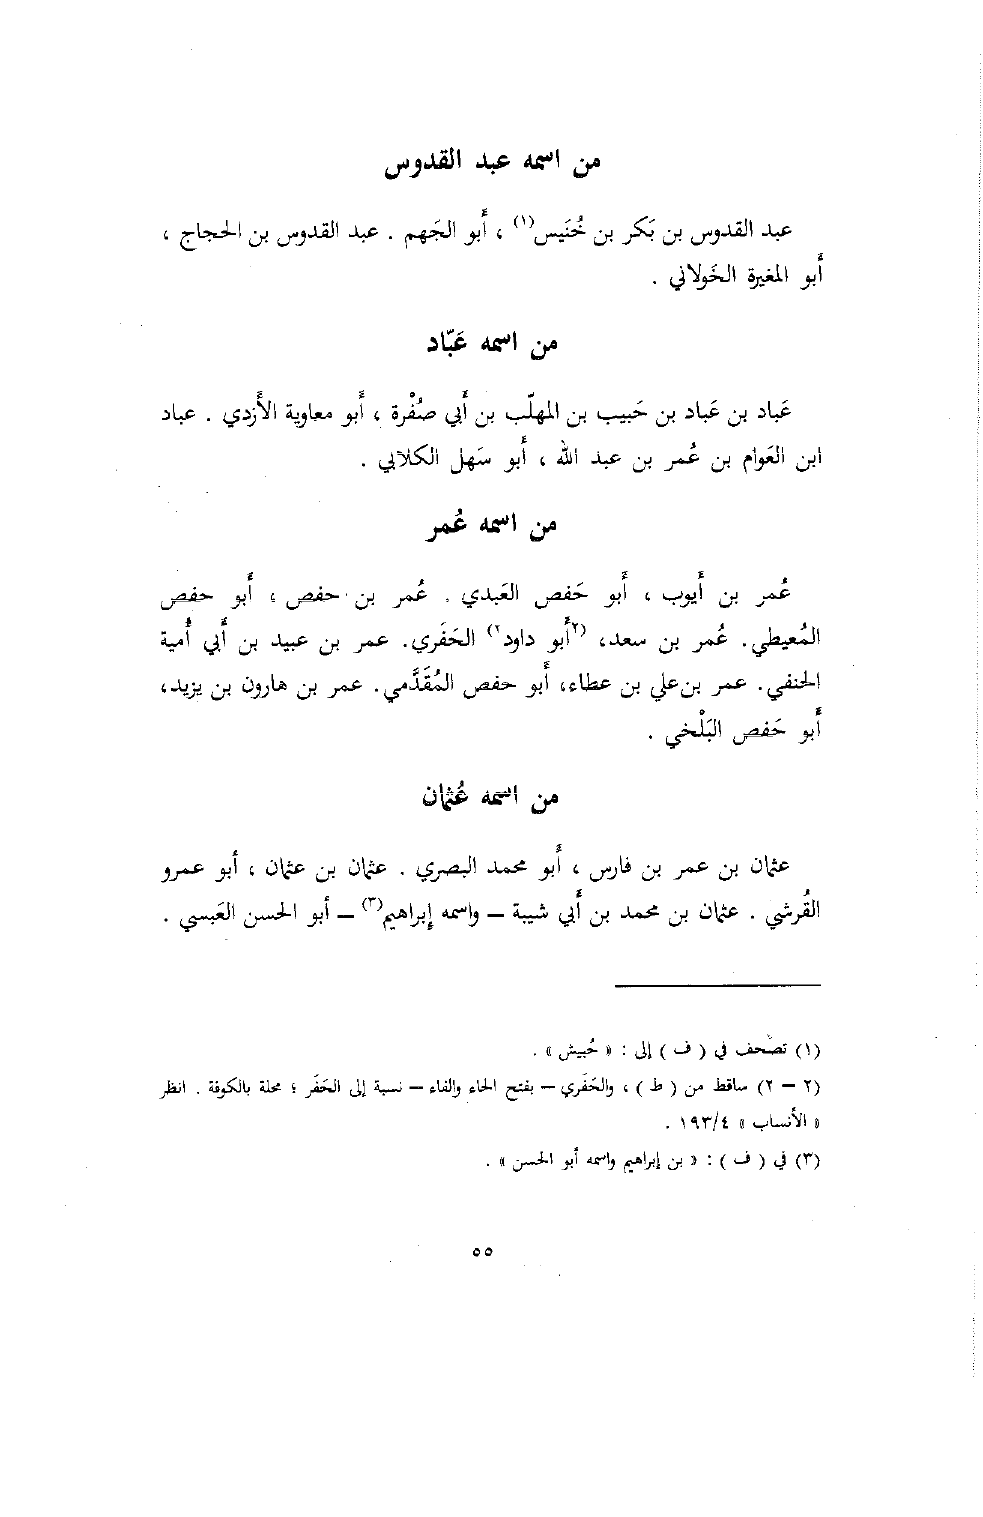 من اسمه عبد القدوس
عبد القدوس بن بَكر بن خُنَيس(١) ، أَبو الجَهم . عبد القدوس بن الحجاج ،
أَبو المغيرة الخَولاني .
من اسمه عَبّاد
عَباد بن عَباد بن حَبيب بن المهلّب بن أَبي صفْرة ، أَبو معاوية الأَزدي . عباد
ابن العَوام بن عُمر بن عبد الله ، أَبو سَهل الكلابي .
من اسمه عُمر
عُمر بن أَيوب ، أَبو حَفص العَبدي . عُمر بن حفص ، أَبو حفص
المُعيطي. عُمر بن سعد، (٢أَبو داود٢) الحَفَري. عمر بن عبيد بن أَبي أُمية
الحنفي. عمر بن علي بن عطاء، أَبو حفص المُقَدَّمي. عمر بن هارون بن يزيد،
أَبو حَفص البَلْخي .
من اسمه عُثمان
عثمان بن عمر بن فارس ، أَبو محمد البصري . عثمان بن عثمان ، أبو عمرو
القُرشي . عثمان بن محمد بن أَبي شيبة – واسمه إبراهيم(٣) – أبو الحسن العَبسي .
(١) تصَحف في ( ف ) إلى : « حُبيش » .
(٢ – ٢) ساقط من ( ط ) ، والحَفَري – بفتح الحاء والفاء – نسبة إلى الحَفَر ؛ محلة بالكوفة . انظر
« الأنساب » ١٩٣/٤ .
(٣) في ( ف ) : « بن إبراهيم واسمه أبو الحسن » .
٥٥